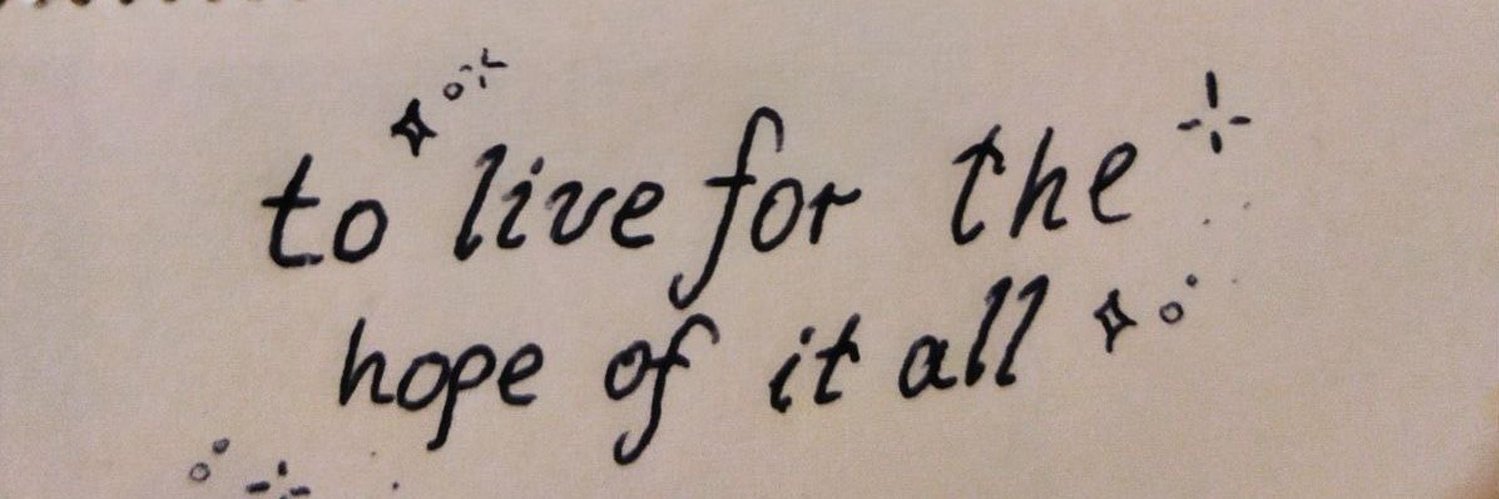 to live for the
hope of it all